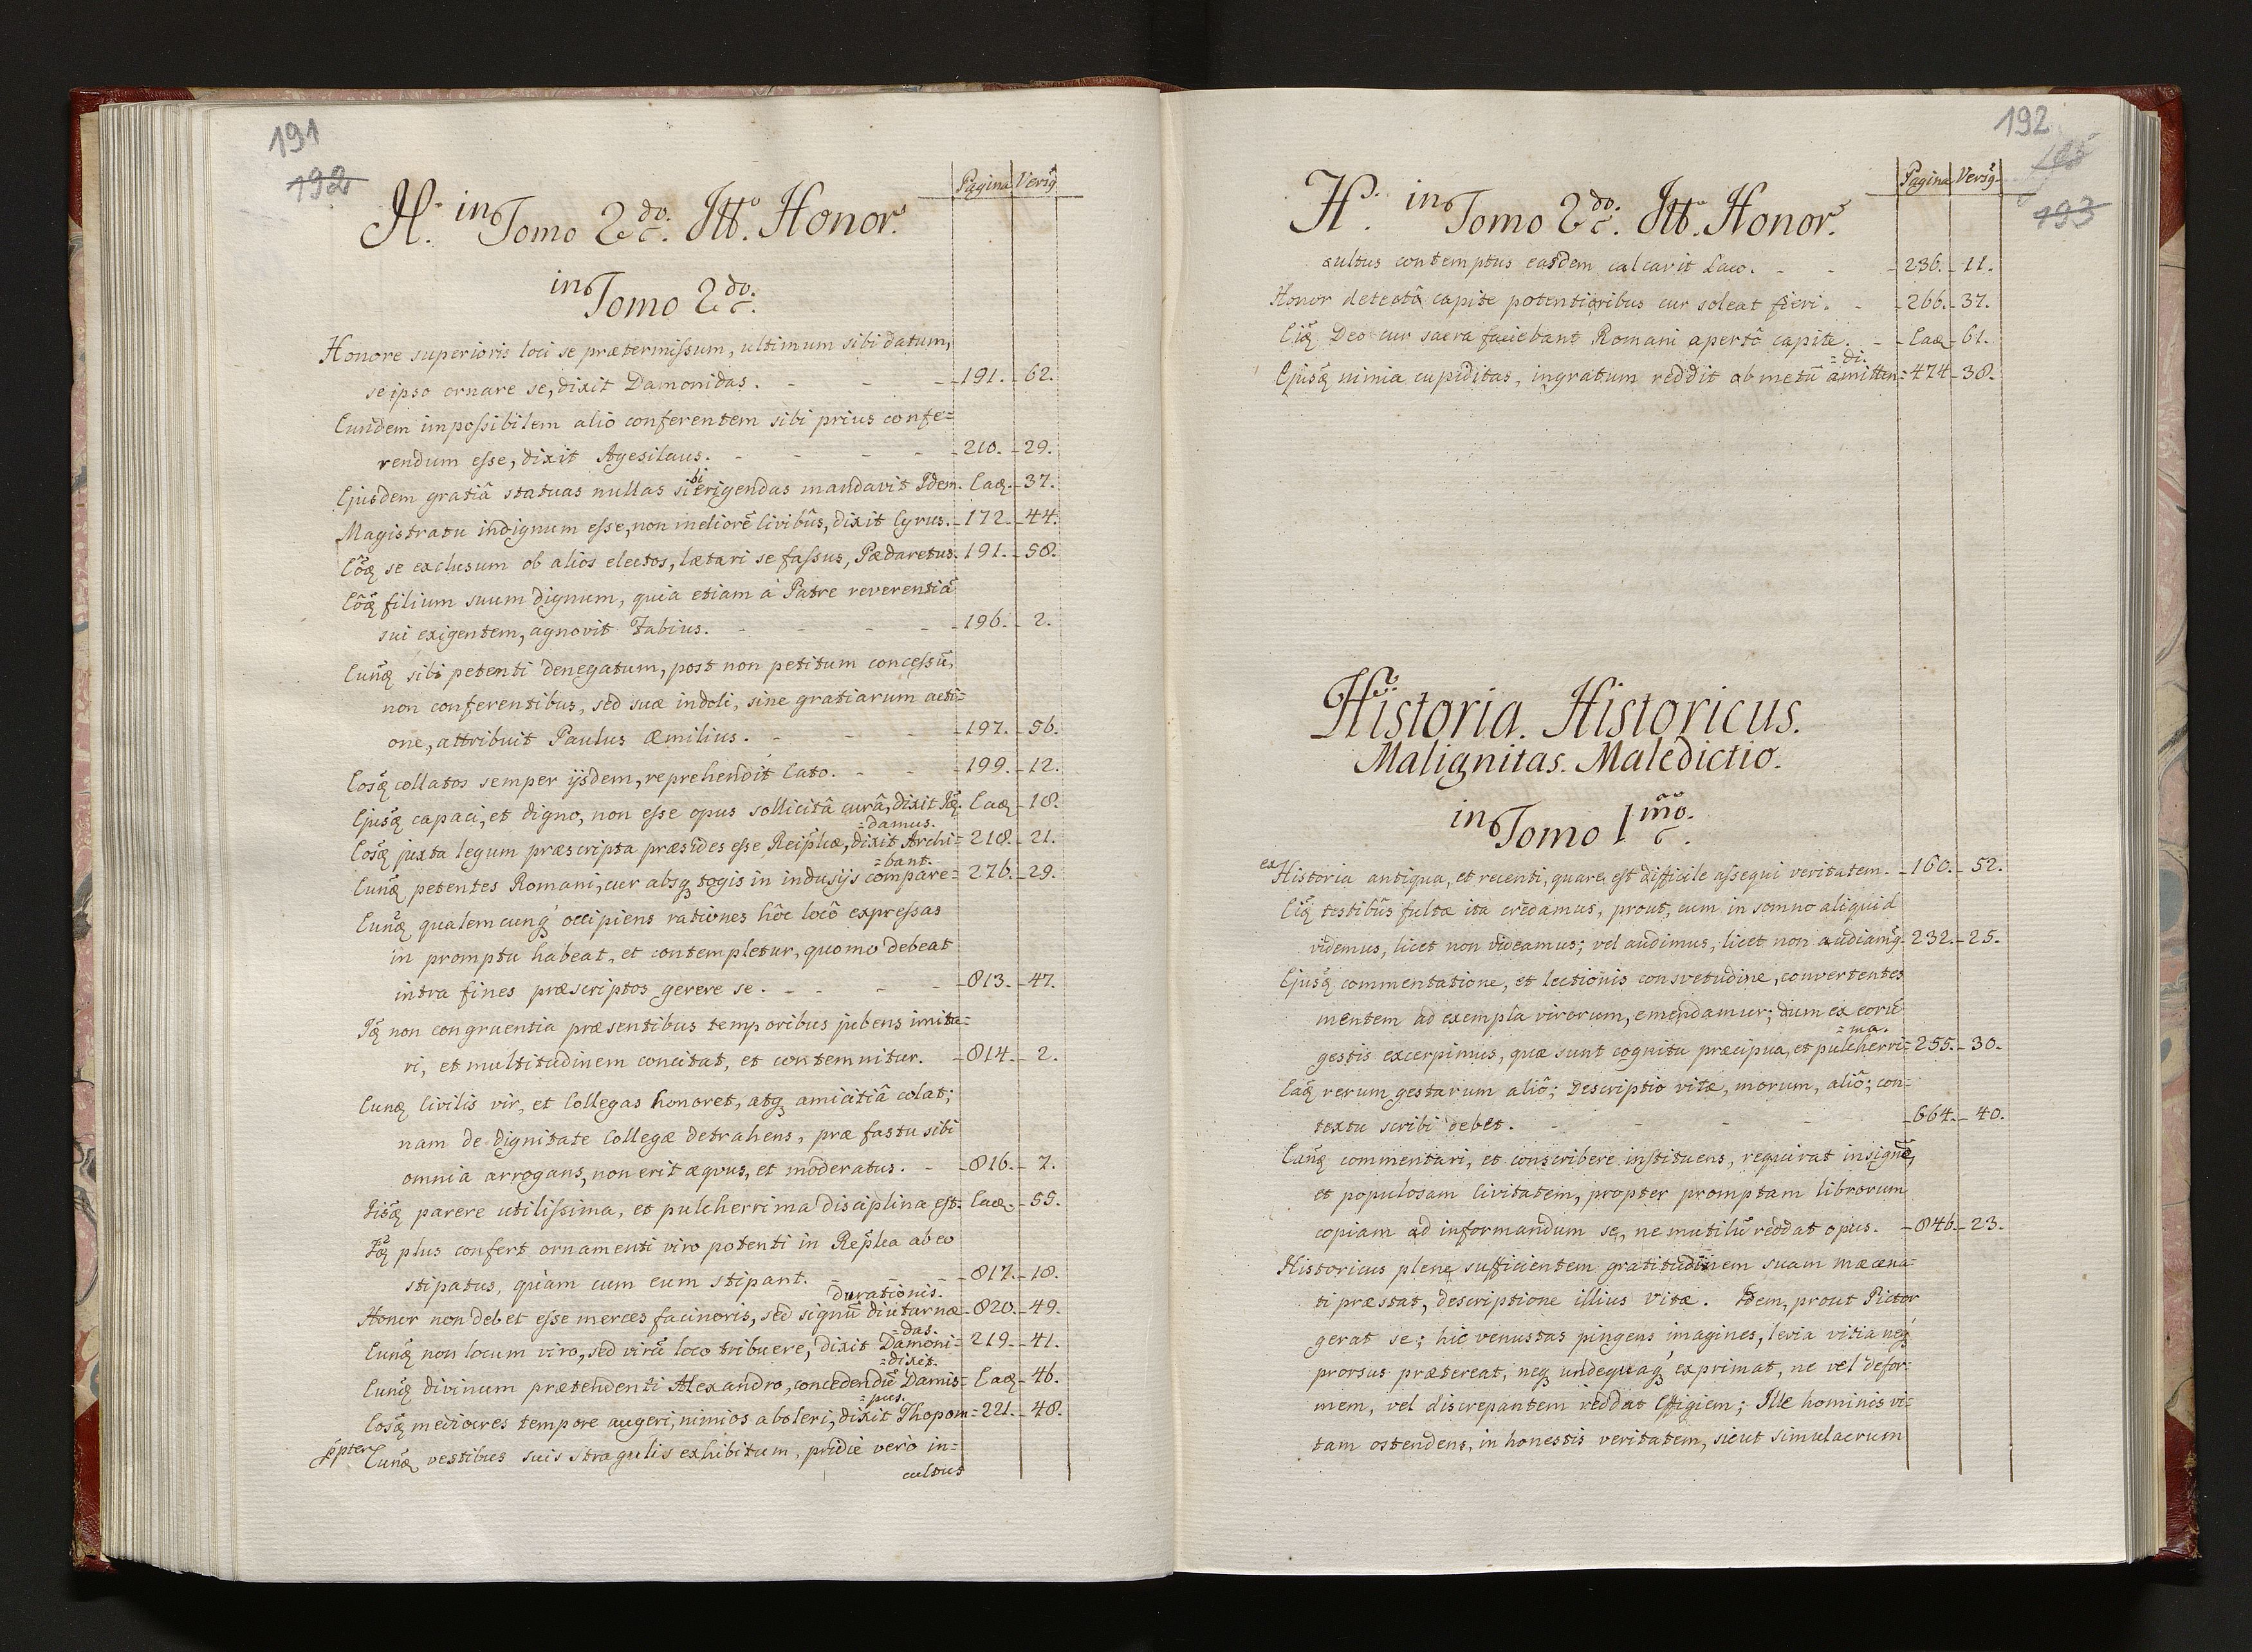 191
192
Pagina Versq
H. in Tomo 2do. Itt. Honor.
in Tomo 2do.
Honore superioris loci se prætermissum, ultimum sibi datum,
se ipso ornare se, dixit Damonidas. - - - 191. - 62.
Eundem impossibilem alio conferentem sibi prius confe=
rendum esse, dixit Agesilaus. - - - - 210. - 29.
Ejusdem gratiâ statuas nullas sibi erigendas mandavit Idem. Eaq - 37.
Magistratu indignum esse, non meliorē Civibûs, dixit Cyrus. - 172. - 44.
Eōq se exclusum ob alios electos, lætari se fassus, Pædaretus. 191. - 58.
Eōq filium suum dignum, quia etiam à Patre reverentiā
sui exigentem, agnovit Fabius. - - - - 196. - 2.
Eunq sibi petenti denegatum, post non petitum concessū,
non conferentibus, sed suæ indoli, sine gratiarum acti=
one, attribuit Paulus Æmilius. - - - 197. - 56.
Eosq collatos semper ijsdem, reprehendit Cato. - - 199. - 12.
Ejusq capaci, et digno, non esse opus sollicitâ curâ, dixit Iq. Eaq - 18.
Eosq juxta legum præscripta præsides esse Reiplicæ, dixit Archi= 218. - 21.
=damus.
Eunq petentes Romani, cur absq togis in indusijs compare= 276. - 29.
=bant.
Eunq qualemcunq occipiens rationes hôc locô expressas
in promptu habeat, et contempletur, quomo debeat
intra fines præscriptos gerere se. - - - - 813. - 47.
Iq non congruentia præsentibus temporibus jubens imita=
ri, et multitudinem concitat, et contemnitur. - 814. - 2.
Eunq Civilis vir, et Collegas honoret, atq amicitiâ colat;
nam de dignitate Collegæ detrahens, præ fastu sibi
omnia arrogans, non erit æqvus, et moderatus. - 816. - 7.
Iisq parere utilissima, et pulcherrima disciplina est. Eaq - 55.
Iq plus confert ornamenti viro potenti in Replica ab eo
stipatus, quàm cum eum stipant. - - - 817. - 18.
durationis.
Honor non debet esse merces facinoris, sed signū diutarnæ - 820. - 49.
Eunq non locum viro, sed virū loco tribuere, dixit Damoni= 219. - 41.
=das.
Eunq divinum prætendenti Alexandro, concedendū Damis= Eaq - 46.
=dixit.
Eosq mediocres tempore augeri, nimios aboleri, dixit Thopom= 221. - 48.
=pus.
ppter Eunq vestibus suis stragulis exhibitum, pridie verò in=
cultus
192
193
Pagina Versq
H. in Tomo 2do. Itt. Honor.
cultus contemptus easdem calcavit Laco. - - - 236. - 11.
Honor detectô capite potentioribus cur soleat fieri. - - 266. - 37.
Eiq Deo cur sacra faciebant Romani apertô capite. - - Eaq - 61.
Ejusq nimia cupiditas, ingratum reddit ab metū amitten= 474 - 38.
=di.
Historia. Historicus.
Malignitas. Maledictio.
in Tomo 1mo.
ex Historia antiqua, et recenti, quare est difficile assequi veritatem. - 160. - 52.
Eiq testibûs fultæ ita credamus, prout, cum in somno aliquid
videmus, licet non videamus; vel audimus, licet non audiamq. 232. - 25.
Ejusq commentatione, et lectionis consvetudine, convertentes
mentem ad exempla virorum, emendamur; dum ex eorū
gestis excerpimus, quæ sunt cognitu præcipua, et pulcherri= 255. - 30.
=ma.
Eaq rerum gestarum aliô; Descriptio vitæ, morum, aliô; con=
textu scribi debet. - - - - 664. - 40.
Eanq commentari, et conscribere instituens, requirat insignē,
et populosam Civitatem, propter promptam librorum
copiam ad informandum se, ne mutilū reddat opus. - 846. - 23.
Historicus plene sufficientem gratitudinem suam mæcena=
ti præstat, descriptione illius Vitæ. Idem, prout Pictor
gerat se; hic venustas pingens imagines, levia vitia neq
prorsus prætereat, neq undequaq exprimat, ne vel defor=
mem, vel discrepantem reddat Effigiem; Ille hominis vi=
tam ostendens, in honestis veritatem, sicut simulacrum